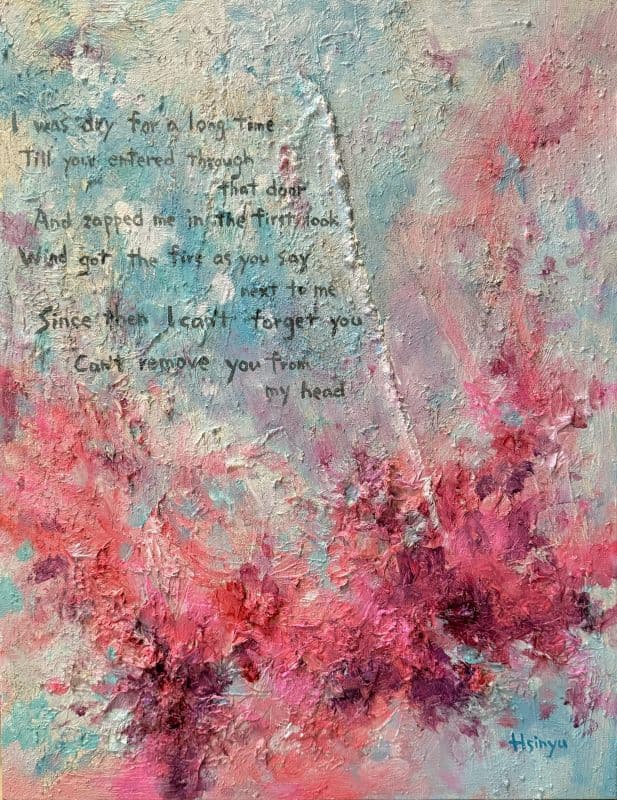 I was dry for a long time
Till your entered through
that door
And zapped me in the first look
Wind got the fire as you say
next to me
Since then I can't forget you
Can't remove you from
my head
Hsinyu